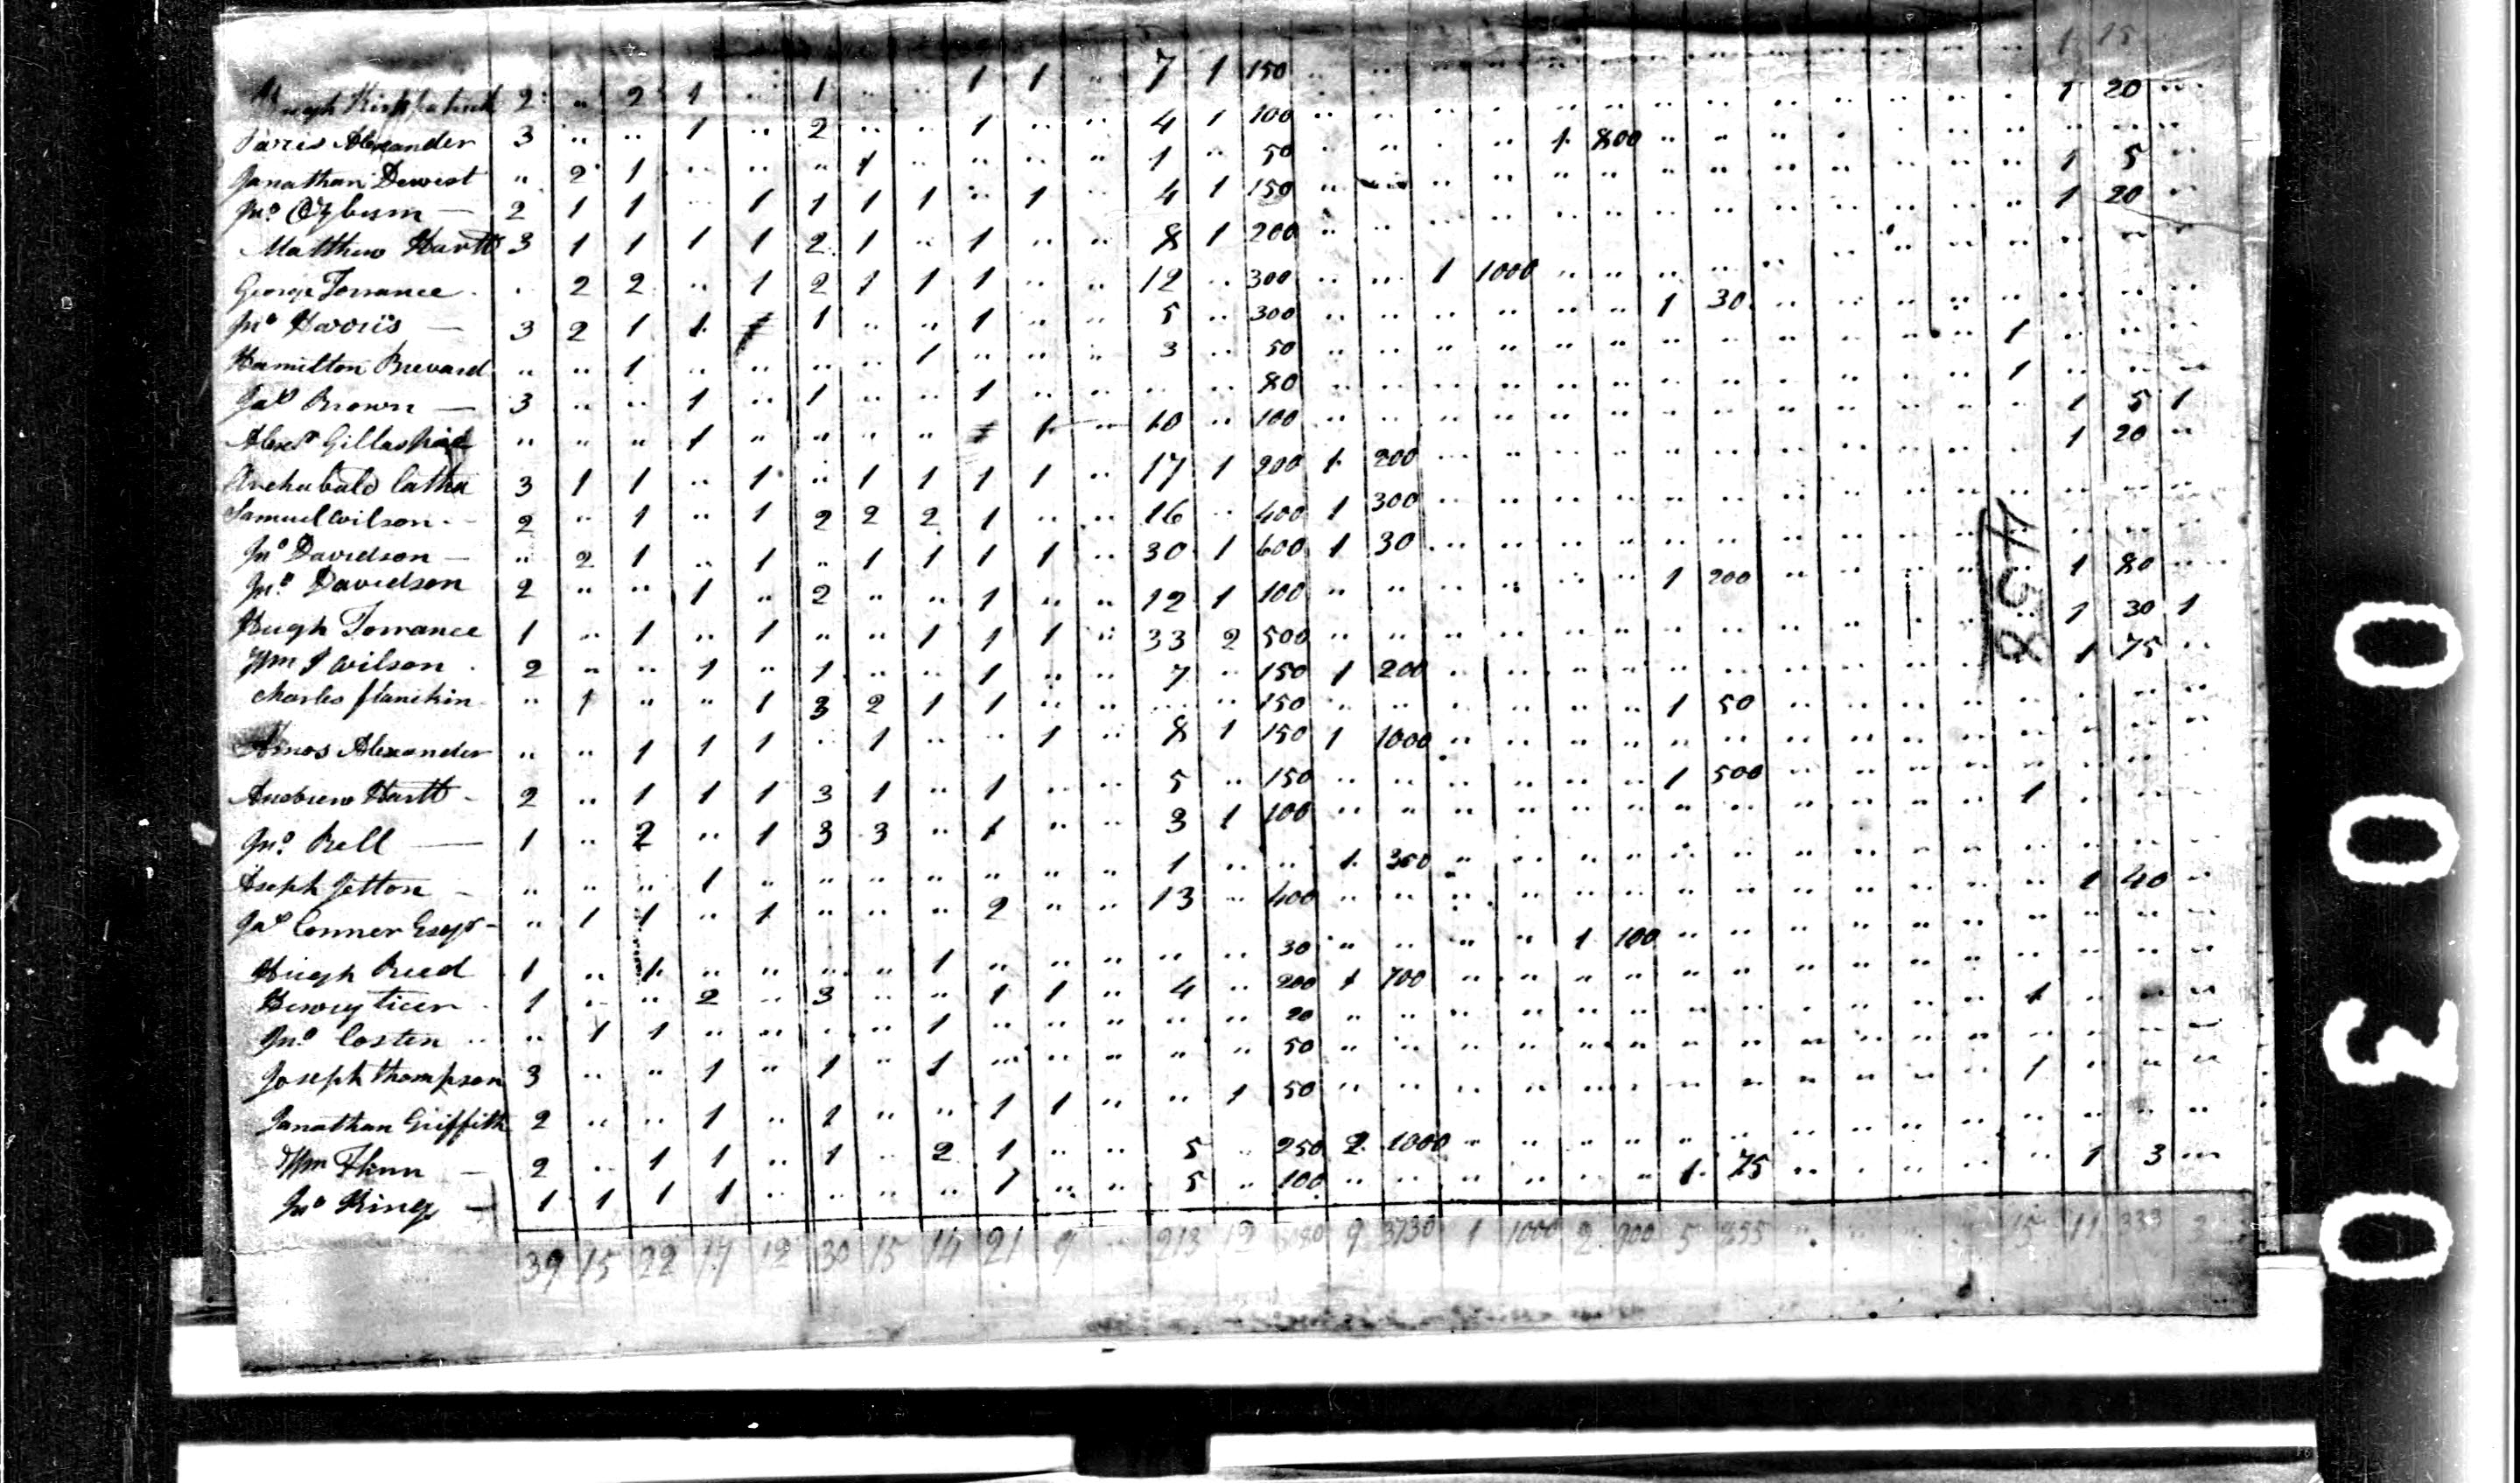 Hugh Kirkpatrick 2 2 1 1 1 1 7 1 150 1 15
Alexander 3 1 2 1 4 1 100 1 20
Jonathan Dewest 2 1 1 1 50 1 800
Jno Ozburn 2 1 1 1 1 1 1 1 4 1 150 1 5
Matthew Hartt 3 1 1 1 1 2 1 1 8 1 200 1 20
George Torrance 2 2 1 2 1 1 1 12 300 1 1000
Jno Harris 3 2 1 1 1 1 5 300 1 30
Hamilton Brevard 1 1 3 50 1
Jas Brown 3 1 1 1 80 1
Alexr Gillaspie 1 1 10 100 1 5 1
Archabald Catha 3 1 1 1 1 1 1 1 17 1 200 1 200 1 20
Samuel Wilson 2 1 1 2 2 2 1 16 400 1 300
Jno Davidson 2 1 1 1 1 1 1 30 1 600 1 30
Jno Davidson 2 1 2 1 12 1 100 1 200 1 80
Hugh Torrance 1 1 1 1 1 1 33 2 500 1 30 1
Wm J Wilson 2 1 1 1 7 150 1 200 1 75
Charles flanikin 1 1 3 2 1 1 150 1 50
Amos Alexander 1 1 1 1 1 8 1 150 1 1000
Andrew Hartt 2 1 1 1 3 1 1 5 150 1 500
Jno Bell 1 2 1 3 3 1 3 1 100 1
Joseph Jetton 1 1 1 350
Jas Conner Esqr 1 1 1 2 13 400 1 40
Hugh Reed 1 1 1 30 1 100
Henry ticer 1 2 3 1 1 4 200 1 700
Jno Costen 1 1 1 20 1
Joseph thompson 3 1 1 1 50
Jonathan Griffith 2 1 1 1 1 1 50 1
Wm Flinn 2 1 1 1 2 1 5 250 2 1000
Jno King 1 1 1 1 1 5 100 1 75 1 3
39 15 22 17 12 30 15 14 21 9 213 12 9 3730 1 1000 2 900 5 855 15 11 333
458
0030